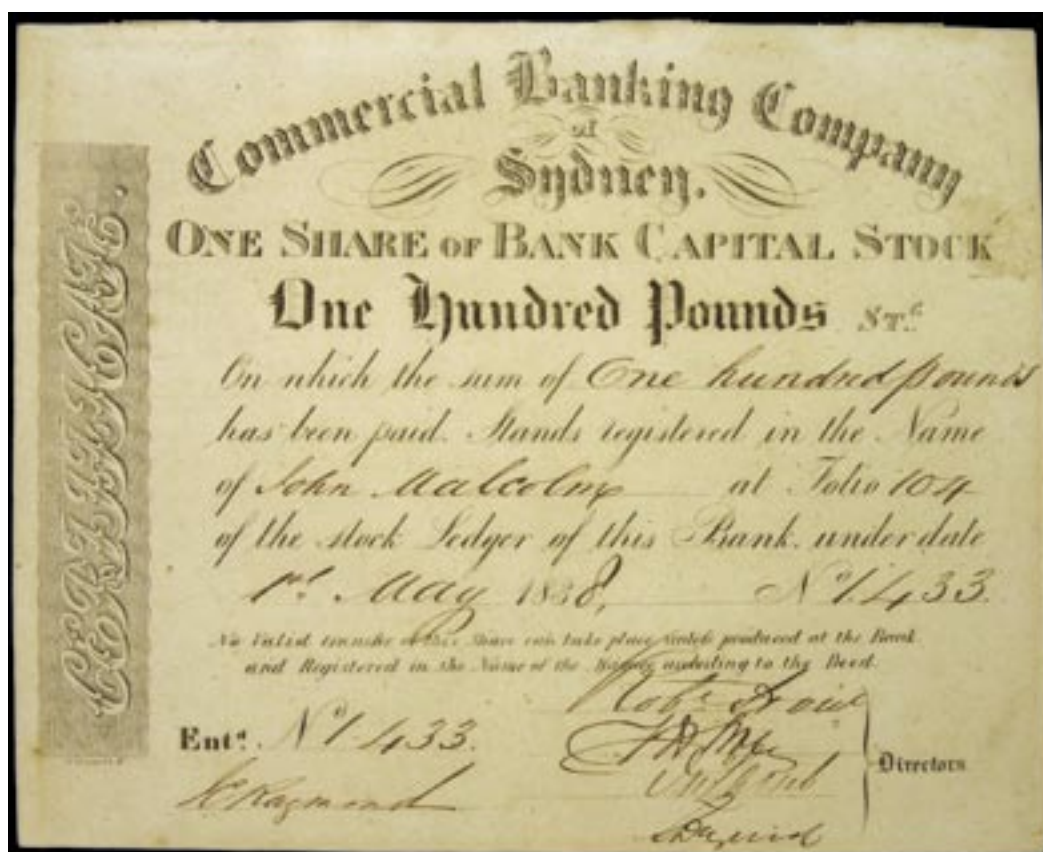 Commercial Banking Company
of
Sydney.
ONE SHARE OF BANK CAPITAL STOCK
One Hundred Pounds ST.G
On which the sum of One hundred pounds
has been paid. Stands registered in the Name
of John Malcolm at Folio 104
of the stock Ledger of this Bank. under date
1st May 1838, No 1433.
No Valid transfer of this Share can take place unless produced at the Bank
and Registered in the Name of the according to the Deed.
Entd. No 1433.
Raymond
Directors